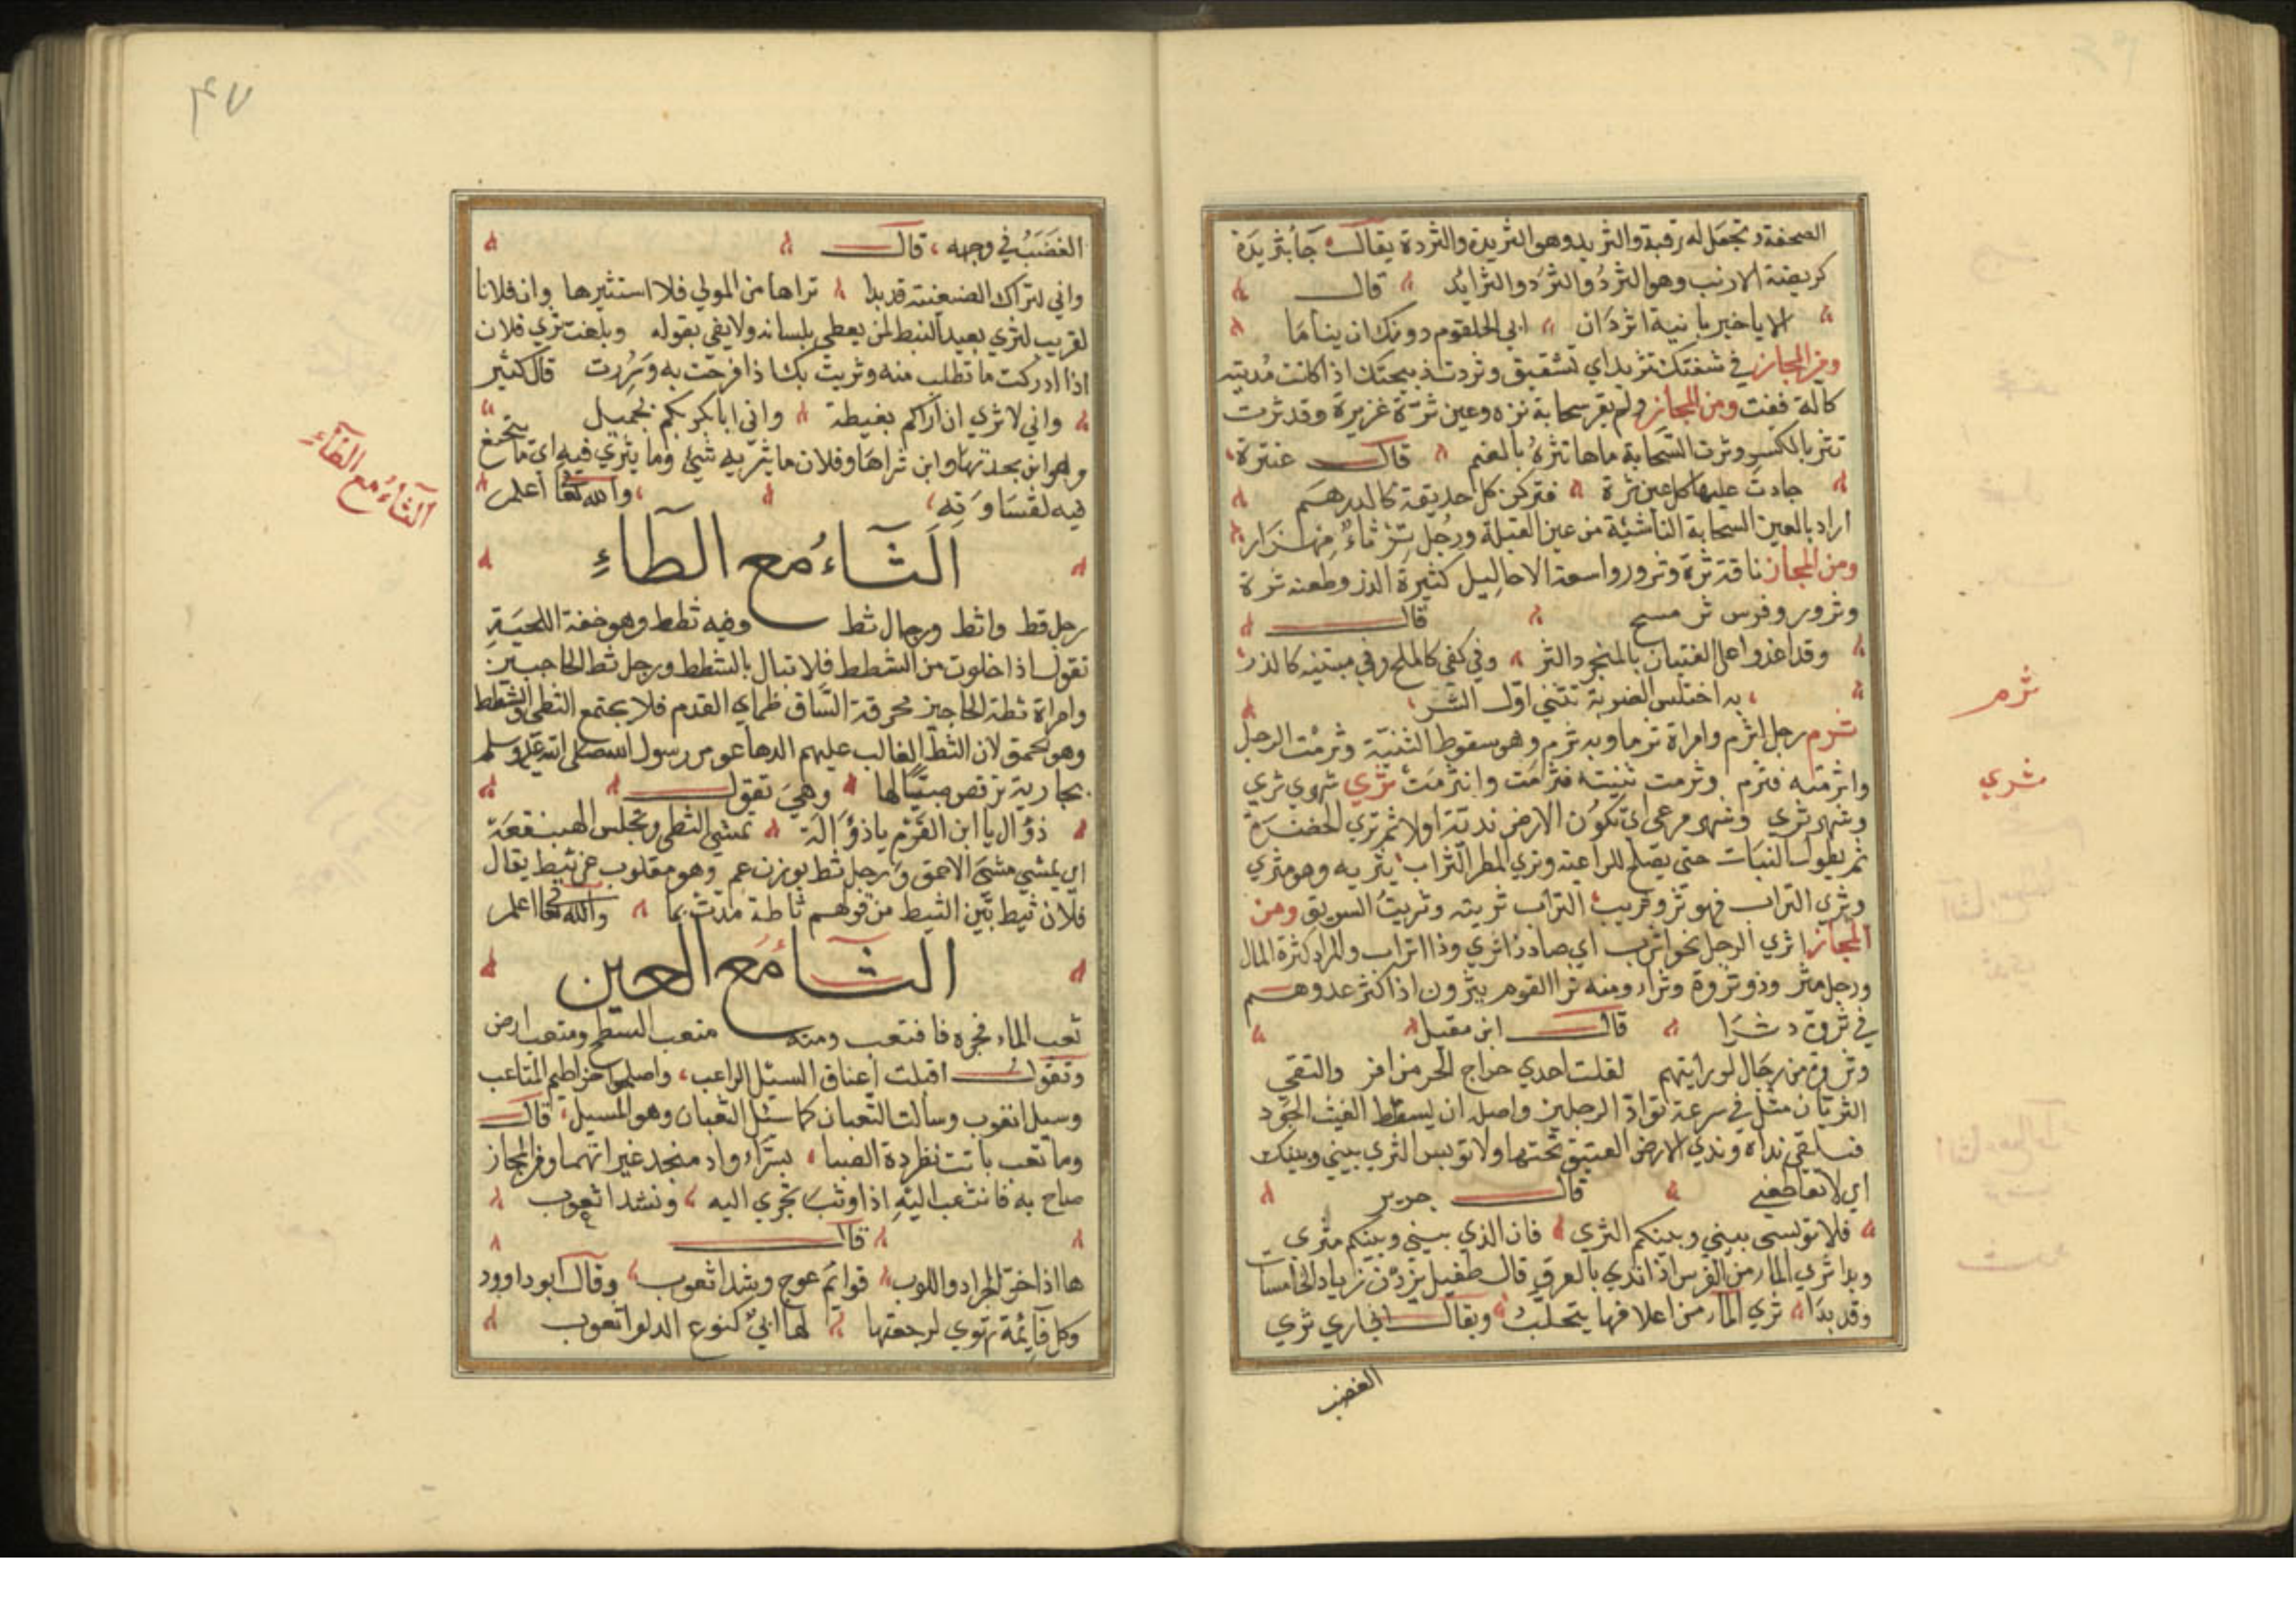 الصحفة وتجعل له رقبة والثريد وهو الثريدة والثردة يقال جأ بثريدة
كربضة الارنب وهو الثرد والثرد والثرايد قال
الا يا خبز يا نية اثردان ابي الحلقوم دونك ان يناما
ومن المجاز في شفتك تثريد اي تشقيق وثردت ذبيحتك اذا كانت مديته
كالة ففت ومن المجاز ولم يقر سحابة نزه وعين ثرة غزيرة وقد ثرت
تثر بالكسر وثرت السحابة ماها تثره بالضم قال عنترة
جادت عليها كل عين ثرة فتركن كل حديقة كالدرهم
اراد بالعين السحابة الناشئية من عين القبلة ورجل ثر ثاء
ومن المجاز ناقة ثرة وثرور واسعة الاحاليل كثيرة الدر وطعنه ثرة
وثرور وفرس ثر مسح قال
وقد اغدوا على الفتيان بالمنجرد الثر وفي كفي كالملح وفي مبتنيه كالذر
به اختلس الضربة تثني اول الشر
ثرم رجل اثرم وامراة ثرما وبه ثرم وهو سقوط الثنية وثرمت الرجل
واثرمته فثرم وثرمت ثنيته فثرمت وانثرمت ثري شهري ثري
وشهر ثري وشهر مرعى اي تكون الارض ندية اولا ثم تري الخضرة
ثم يطول النبات حتى يصلح للراعية وثري المطر التراب يثريه وهو مثري
وثري التراب فهو ثر وقريب التراب ثريته وثريت السويق ومن
المجاز اثري الرجل نحو اترب اي صار ذا ثري وذا اتراب والمراد كثرة المال
ورجل مثر وذو ثروة وثراء ومنه ثرا القوم يثرون اذا كثر عدوهم
في ثروة وثرا قال ابن مقبل
وثروة من رجال لو رايتهم لقلت احدي حراج الجر من اقر والتقي
الثريان مثل في سرعة تواد الرجلين واصله ان يسقط الغيث الجود
فيلتقى نداه وندي الارض العتيق تحتها ولا توبس الثري بيني وبينك
اي لا تقاطعني قال جرير
فلا توبسى بيني وبينكم الثري فان الذي بيني وبينكم مثري
وبدا ثري الماء من الفرس اذا ندي بالعرق قال طفيل يزدن زياد الخامسات
وقد بدا ثري الماء من اعلافها يتحلب ويقال اني اري ثري
الغضب
ثرم
ثري
الغضب في وجهه قال
واني لتراك الضغينة قد بدا تراها من المولي فلا استثيرها وان فلانا
لقريب الثري بعيد النبط لمن يعطي بلسانه ولا يفي بقوله وبلغت ثري فلان
اذا ادركت ما تطلب منه وثريت بك اذا فرحت به وسررت قال كثير
واني لاثري ان اراكم بغبطة واني ابا بكر بكم لجميل
وهو ابن بجدتها وابن ثراها وفلان ما يثريه شيء وما يثري فيه اي ما ينجع
فيه لقساوته والله تعا اعلم
الثآء مع الطآء
رجل قط واثط ورجال ثط وفيه ثطط وهو خفة اللحية
تقول اذا خلوت من الشطط فلا تبال بالثطط ورجل ثط الحاجبين
وامراة ثطة الحاجبين محرقة الساق ظماي القدم فلا يجتمع الثطى والثطط
وهو الحمق لان الثط الغالب عليهم الدها عو مر رسول الله صلى الله عليه وسلم
بجارية ترقص صبيا لها وهي تقول
ذؤال يا ابن القرم يا ذؤاله تمشي الثطى وتجلس الهبنقعة
اي يمشي مشي الاحمق ورجل ثط بوزن عم وهو مقلوب من ثيط يقال
فلان ثيط بين الثيط من قولهم ثاطة مدت بما والله تعا اعلم
الثآ مع العين
ثعب الماء فجره فانثعب ومنه مثعب السطح ومثعب ارض
وتقول اقبلت اعناق السيل الراعب واصلحوا خراطيم المثاعب
وسيل اثعوب وسالت الثعبان كما سئل الثعبان وهو المسيل قال
وما ثعب باتت نظردة الصبا بسراء واد منجد غير اتهما ومن المجاز
صاح به فانثعب اليه اذا وثب يجري اليه ونشد اثعوب
قال
ها اذا اخوة الجراد واللوب قوائم عوج وشد اثعوب وقال ابو داوود
وكل قآئمة تهوي لرجعتها لها ابي كنوع الدلو اثعوب
الثآء مع الفآء
٤٧